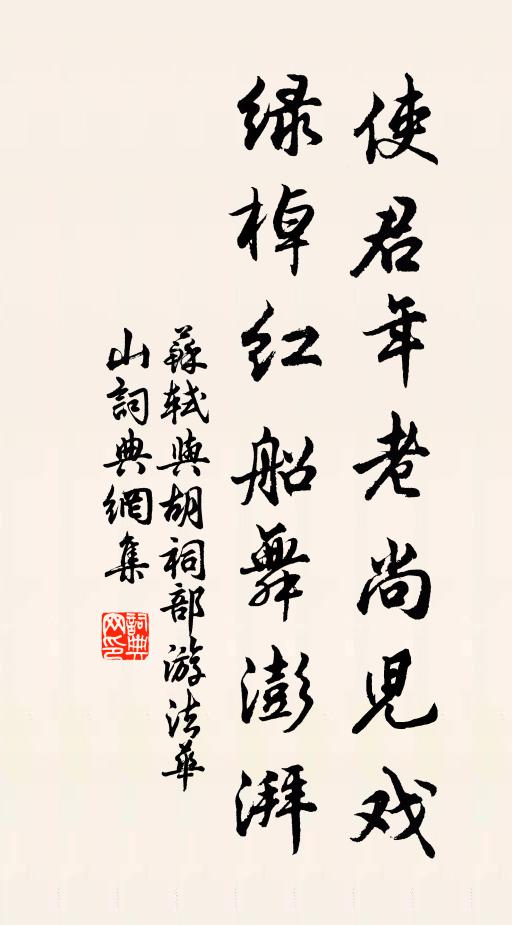 使君年老尚児戏
绿棹红船舞澎湃
蘇軾與胡祠部游法華
山詞典網集
詞典
网印